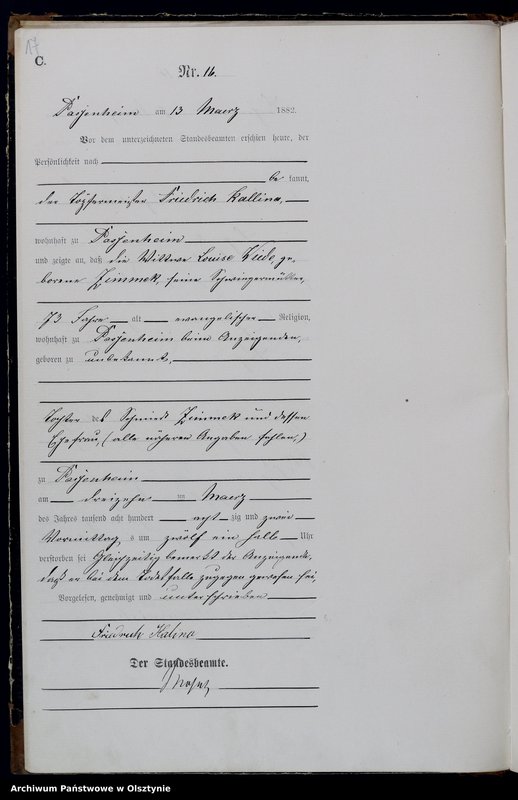 17
C.
Nr. 16.
Passenheim am 13 Maerz 1882.
Vor dem unterzeichneten Standesbeamten erschien heute, der
Persönlichkeit nach
be kannt,
der Töpfermeister Friedrich Kallina,
wohnhaft zu Passenheim
und zeigte an, daß die Wittwe Louise ge-
borene Zimmek, seine Schwiegermutter,
73 Jahre alt evangelischer Religion,
wohnhaft zu Passenheim beim Anzeigenden,
geboren zu unbekannt,
Tochter des Schmieds Zimmek und dessen
Ehefrau, (alle näheren Angaben fehlen,)
zu Passenheim
am dreizehn ten Maerz
des Jahres tausend acht hundert acht zig und zwei
Vormittag s um zwölf ein halb Uhr
verstorben sei Gleichzeitig bemerkt der Anzeigende,
daß er bei dem Todesfalle zugegen gewesen sei,
Vorgelesen, genehmigt und unterschrieben
Friedrich Kalina
Der Standesbeamte.
Archiwum Państwowe w Olsztynie